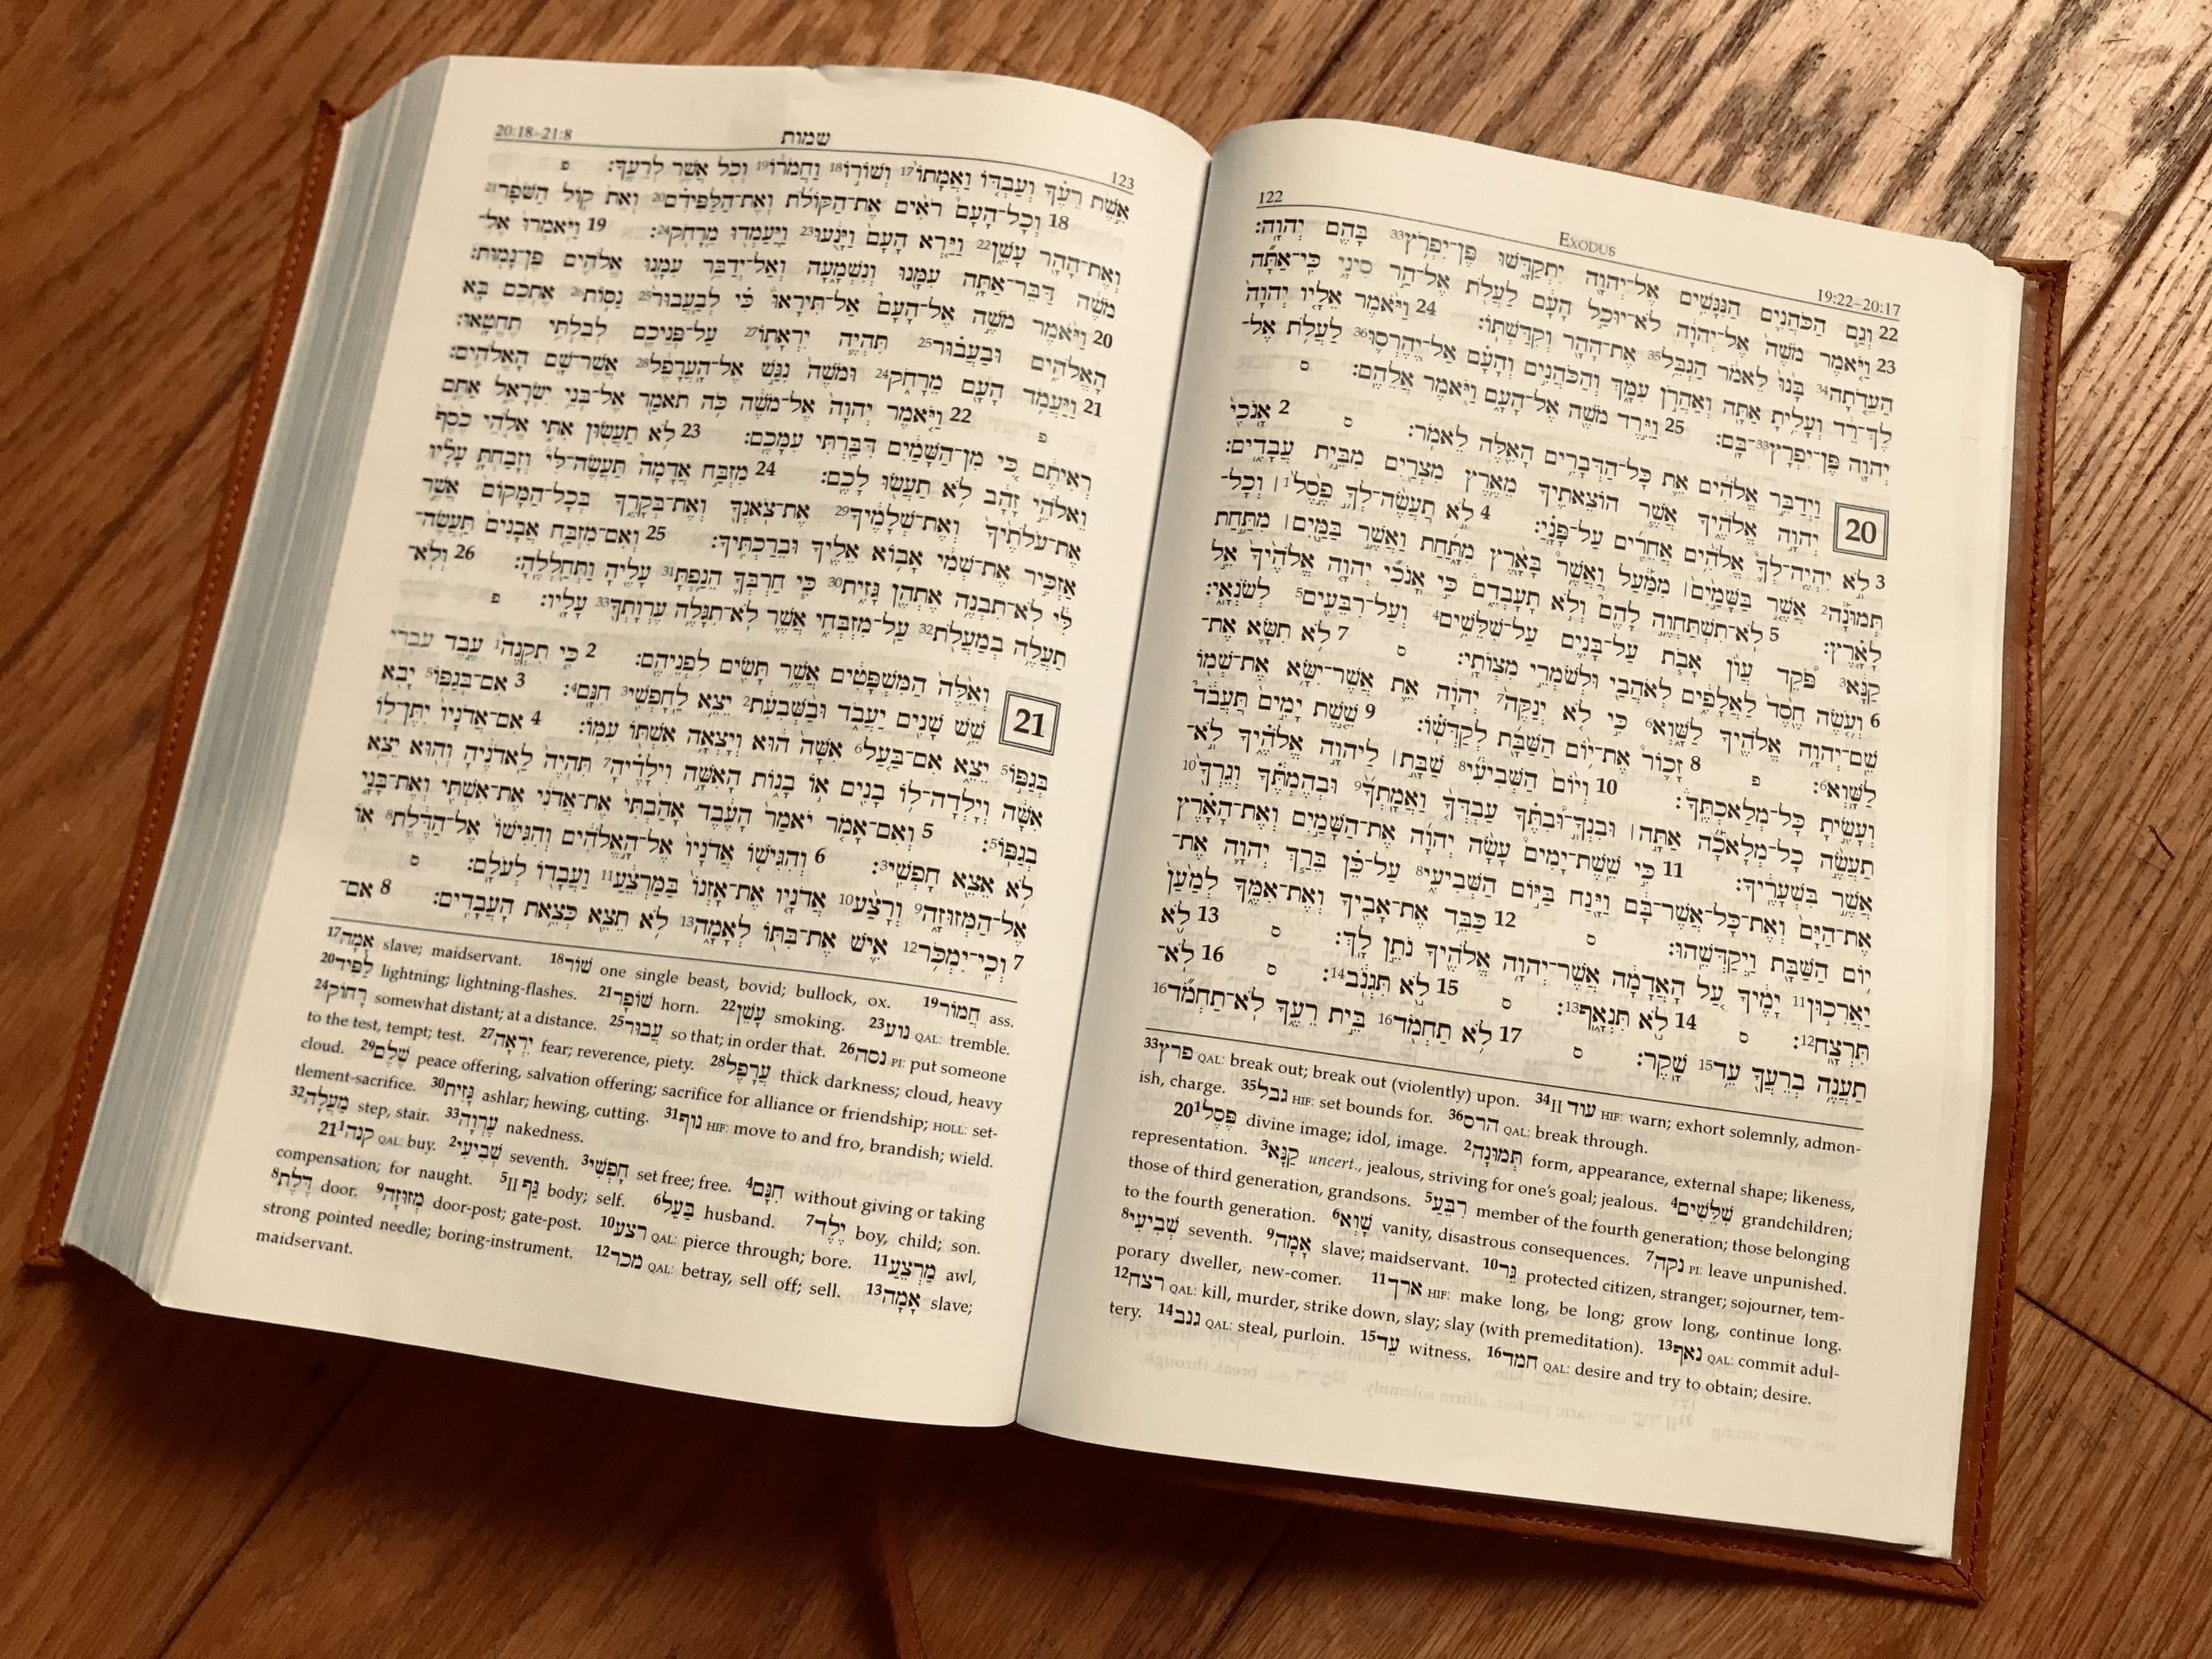 122 EXODUS 19:22–20:17
22 וְגַם הַכֹּהֲנִים הַנִּגָּשִׁים אֶל־יְהוָה יִתְקַדָּשׁוּ פֶּן־יִפְרֹץ33 בָּהֶם יְהוָה׃
23 וַיֹּאמֶר מֹשֶׁה אֶל־יְהוָה לֹא־יוּכַל הָעָם לַעֲלֹת אֶל־הַר סִינָי כִּי־אַתָּה
הַעֵדֹתָה34 בָּנוּ לֵאמֹר הַגְבֵּל35 אֶת־הָהָר וְקִדַּשְׁתּוֹ׃ 24 וַיֹּאמֶר אֵלָיו יְהוָה
לֶךְ־רֵד וְעָלִיתָ אַתָּה וְאַהֲרֹן עִמָּךְ וְהַכֹּהֲנִים וְהָעָם אַל־יֶהֶרְסוּ36 לַעֲלֹת אֶל־
יְהוָה פֶּן־יִפְרָץ33־בָּם׃ 25 וַיֵּרֶד מֹשֶׁה אֶל־הָעָם וַיֹּאמֶר אֲלֵהֶם׃ ס
20 וַיְדַבֵּר אֱלֹהִים אֵת כָּל־הַדְּבָרִים הָאֵלֶּה לֵאמֹר׃ ס 2 אָנֹכִי
יְהוָה אֱלֹהֶיךָ אֲשֶׁר הוֹצֵאתִיךָ מֵאֶרֶץ מִצְרַיִם מִבֵּית עֲבָדִים׃
3 לֹא יִהְיֶה־לְךָ אֱלֹהִים אֲחֵרִים עַל־פָּנָי׃ 4 לֹא תַעֲשֶׂה־לְךָ פֶסֶל1׀ וְכָל־
תְּמוּנָה2 אֲשֶׁר בַּשָּׁמַיִם׀ מִמַּעַל וַאֲשֶׁר בָּאָרֶץ מִתָּחַת וַאֲשֶׁר בַּמַּיִם׀ מִתַּחַת
לָאָרֶץ׃ 5 לֹא־תִשְׁתַּחְוֶה לָהֶם וְלֹא תָעָבְדֵם כִּי אָנֹכִי יְהוָה אֱלֹהֶיךָ אֵל
קַנָּא3 פֹּקֵד עֲוֹן אָבֹת עַל־בָּנִים עַל־שִׁלֵּשִׁים4 וְעַל־רִבֵּעִים5 לְשֹׂנְאָי׃
6 וְעֹשֶׂה חֶסֶד לַאֲלָפִים לְאֹהֲבַי וּלְשֹׁמְרֵי מִצְוֹתָי׃ ס 7 לֹא תִשָּׂא אֶת־
שֵׁם־יְהוָה אֱלֹהֶיךָ לַשָּׁוְא6 כִּי לֹא יְנַקֶּה7 יְהוָה אֵת אֲשֶׁר־יִשָּׂא אֶת־שְׁמוֹ
לַשָּׁוְא6׃ פ 8 זָכוֹר אֶת־יוֹם הַשַּׁבָּת לְקַדְּשׁוֹ׃ 9 שֵׁשֶׁת יָמִים תַּעֲבֹד
וְעָשִׂיתָ כָּל־מְלַאכְתֶּךָ׃ 10 וְיוֹם הַשְּׁבִיעִי8 שַׁבָּת׀ לַיהוָה אֱלֹהֶיךָ לֹא־
תַעֲשֶׂה כָל־מְלָאכָה אַתָּה׀ וּבִנְךָ־וּבִתֶּךָ עַבְדְּךָ וַאֲמָתְךָ9 וּבְהֶמְתֶּךָ וְגֵרְךָ10
אֲשֶׁר בִּשְׁעָרֶיךָ׃ 11 כִּי שֵׁשֶׁת־יָמִים עָשָׂה יְהוָה אֶת־הַשָּׁמַיִם וְאֶת־הָאָרֶץ
אֶת־הַיָּם וְאֶת־כָּל־אֲשֶׁר־בָּם וַיָּנַח בַּיּוֹם הַשְּׁבִיעִי8 עַל־כֵּן בֵּרַךְ יְהוָה אֶת־
יוֹם הַשַּׁבָּת וַיְקַדְּשֵׁהוּ׃ ס 12 כַּבֵּד אֶת־אָבִיךָ וְאֶת־אִמֶּךָ לְמַעַן
יַאֲרִכוּן11 יָמֶיךָ עַל הָאֲדָמָה אֲשֶׁר־יְהוָה אֱלֹהֶיךָ נֹתֵן לָךְ׃ ס 13 לֹא
תִּרְצָח12׃ ס 14 לֹא תִּנְאָף13׃ ס 15 לֹא תִּגְנֹב14׃ ס 16 לֹא־
תַעֲנֶה בְרֵעֲךָ עֵד15 שָׁקֶר׃ ס 17 לֹא תַחְמֹד16 בֵּית רֵעֶךָ לֹא־תַחְמֹד16
33פרץ QAL: break out; break out (violently) upon. 34II עוד HIF: warn; exhort solemnly, admon-
ish, charge. 35גבל HIF: set bounds for. 36הרס QAL: break through.
20 1פֶּסֶל divine image; idol, image. 2תְּמוּנָה form, appearance, external shape; likeness,
representation. 3קַנָּא uncert., jealous, striving for one's goal; jealous. 4שִׁלֵּשִׁים grandchildren;
those of third generation, grandsons. 5רִבֵּעַ member of the fourth generation; those belonging
to the fourth generation. 6שָׁוְא vanity, disastrous consequences. 7נקה PI: leave unpunished.
8שְׁבִיעִי seventh. 9אָמָה slave; maidservant. 10גֵּר protected citizen, stranger; sojourner, tem-
porary dweller, new-comer. 11ארך HIF: make long, be long; grow long, continue long.
12רצח QAL: kill, murder, strike down, slay; slay (with premeditation). 13נאף QAL: commit adul-
tery. 14גנב QAL: steal, purloin. 15עֵד witness. 16חמד QAL: desire and try to obtain; desire.
20:18–21:8 שמות 123
אֵשֶׁת רֵעֶךָ וְעַבְדּוֹ וַאֲמָתוֹ17 וְשׁוֹרוֹ18 וַחֲמֹרוֹ19 וְכֹל אֲשֶׁר לְרֵעֶךָ׃ פ
18 וְכָל־הָעָם רֹאִים אֶת־הַקּוֹלֹת וְאֶת־הַלַּפִּידִם20 וְאֵת קוֹל הַשֹּׁפָר21
וְאֶת־הָהָר עָשֵׁן22 וַיַּרְא הָעָם וַיָּנֻעוּ23 וַיַּעַמְדוּ מֵרָחֹק24׃ 19 וַיֹּאמְרוּ אֶל־
מֹשֶׁה דַּבֵּר־אַתָּה עִמָּנוּ וְנִשְׁמָעָה וְאַל־יְדַבֵּר עִמָּנוּ אֱלֹהִים פֶּן־נָמוּת׃
20 וַיֹּאמֶר מֹשֶׁה אֶל־הָעָם אַל־תִּירָאוּ כִּי לְבַעֲבוּר25 נַסּוֹת26 אֶתְכֶם בָּא
הָאֱלֹהִים וּבַעֲבוּר25 תִּהְיֶה יִרְאָתוֹ27 עַל־פְּנֵיכֶם לְבִלְתִּי תֶחֱטָאוּ׃
21 וַיַּעֲמֹד הָעָם מֵרָחֹק24 וּמֹשֶׁה נִגַּשׁ אֶל־הָעֲרָפֶל28 אֲשֶׁר־שָׁם הָאֱלֹהִים׃
פ 22 וַיֹּאמֶר יְהוָה אֶל־מֹשֶׁה כֹּה תֹאמַר אֶל־בְּנֵי יִשְׂרָאֵל אַתֶּם
רְאִיתֶם כִּי מִן־הַשָּׁמַיִם דִּבַּרְתִּי עִמָּכֶם׃ 23 לֹא תַעֲשׂוּן אִתִּי אֱלֹהֵי כֶסֶף
וֵאלֹהֵי זָהָב לֹא תַעֲשׂוּ לָכֶם׃ 24 מִזְבַּח אֲדָמָה תַּעֲשֶׂה־לִּי וְזָבַחְתָּ עָלָיו
אֶת־עֹלֹתֶיךָ וְאֶת־שְׁלָמֶיךָ29 אֶת־צֹאנְךָ וְאֶת־בְּקָרֶךָ בְּכָל־הַמָּקוֹם אֲשֶׁר
אַזְכִּיר אֶת־שְׁמִי אָבוֹא אֵלֶיךָ וּבֵרַכְתִּיךָ׃ 25 וְאִם־מִזְבַּח אֲבָנִים תַּעֲשֶׂה־
לִּי לֹא־תִבְנֶה אֶתְהֶן גָּזִית30 כִּי חַרְבְּךָ הֵנַפְתָּ31 עָלֶיהָ וַתְּחַלְלֶהָ׃ 26 וְלֹא־
תַעֲלֶה בְמַעֲלֹת32 עַל־מִזְבְּחִי אֲשֶׁר לֹא־תִגָּלֶה עֶרְוָתְךָ33 עָלָיו׃ פ
21 וְאֵלֶּה הַמִּשְׁפָּטִים אֲשֶׁר תָּשִׂים לִפְנֵיהֶם׃ 2 כִּי תִקְנֶה1 עֶבֶד עִבְרִי
שֵׁשׁ שָׁנִים יַעֲבֹד וּבַשְּׁבִעִת2 יֵצֵא לַחָפְשִׁי3 חִנָּם4׃ 3 אִם־בְּגַפּוֹ5 יָבֹא
בְּגַפּוֹ5 יֵצֵא אִם־בַּעַל6 אִשָּׁה הוּא וְיָצְאָה אִשְׁתּוֹ עִמּוֹ׃ 4 אִם־אֲדֹנָיו יִתֶּן־לוֹ
אִשָּׁה וְיָלְדָה־לוֹ בָנִים אוֹ בָנוֹת הָאִשָּׁה וִילָדֶיהָ7 תִּהְיֶה לַאדֹנֶיהָ וְהוּא יֵצֵא
בְגַפּוֹ5׃ 5 וְאִם־אָמֹר יֹאמַר הָעֶבֶד אָהַבְתִּי אֶת־אֲדֹנִי אֶת־אִשְׁתִּי וְאֶת־בָּנָי
לֹא אֵצֵא חָפְשִׁי3׃ 6 וְהִגִּישׁוֹ אֲדֹנָיו אֶל־הָאֱלֹהִים וְהִגִּישׁוֹ אֶל־הַדֶּלֶת8 אוֹ
אֶל־הַמְּזוּזָה9 וְרָצַע10 אֲדֹנָיו אֶת־אָזְנוֹ בַּמַּרְצֵעַ11 וַעֲבָדוֹ לְעֹלָם׃ ס
7 וְכִי־יִמְכֹּר12 אִישׁ אֶת־בִּתּוֹ לְאָמָה13 לֹא תֵצֵא כְּצֵאת הָעֲבָדִים׃ 8 אִם־
17אָמָה slave; maidservant. 18שׁוֹר one single beast, bovid; bullock, ox. 19חֲמוֹר ass.
20לַפִּיד lightning; lightning-flashes. 21שׁוֹפָר horn. 22עָשֵׁן smoking. 23נוע QAL: tremble.
24רָחוֹק somewhat distant; at a distance. 25עֲבוּר so that; in order that. 26נסה PI: put someone
to the test, tempt; test. 27יִרְאָה fear; reverence, piety. 28עֲרָפֶל thick darkness; cloud, heavy
cloud. 29שֶׁלֶם peace offering, salvation offering; sacrifice for alliance or friendship; HOLL: set-
tlement-sacrifice. 30גָּזִית ashlar; hewing, cutting. 31נוף HIF: move to and fro, brandish; wield.
32מַעֲלָה step, stair. 33עֶרְוָה nakedness.
21 1קנה QAL: buy. 2שְׁבִיעִי seventh. 3חָפְשִׁי set free; free. 4חִנָּם without giving or taking
compensation; for naught. 5II גַּף body; self. 6בַּעַל husband. 7יֶלֶד boy, child; son.
8דֶּלֶת door. 9מְזוּזָה door-post; gate-post. 10רצע QAL: pierce through; bore. 11מַרְצֵעַ awl,
strong pointed needle; boring-instrument. 12מכר QAL: betray, sell off; sell. 13אָמָה slave;
maidservant.